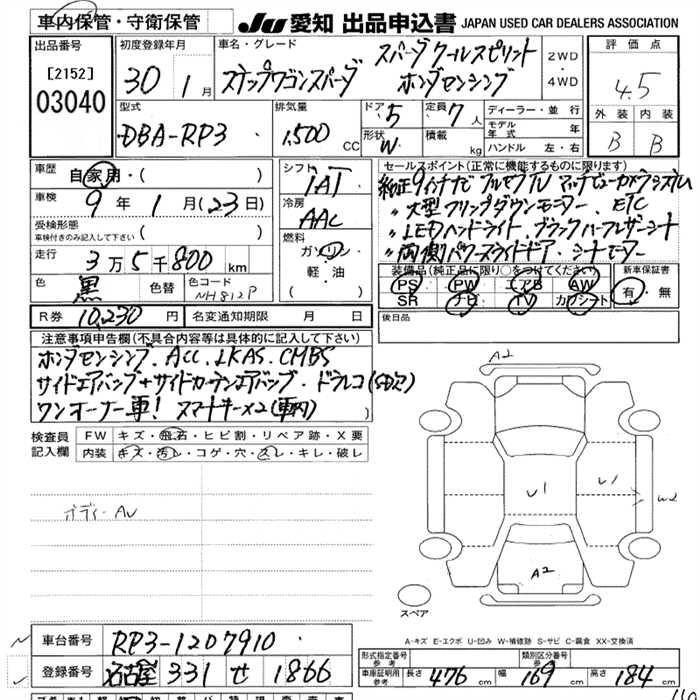 車内保管・守衛保管
JU 愛知 出品申込書 JAPAN USED CAR DEALERS ASSOCIATION
出品番号
[2152]
03040
初度登録年月
30 1月
車名・グレード
スパーダ クールスピリット
ステップワゴンスパーダ ホンダセンシング
2WD
・
4WD
評価点
4.5
外装 内装
B B
型式
DBA-RP3
排気量
1,500 CC
ドア 5
形状 W
定員 7 人
積載 kg
ディーラー・並行
モデル年式 年
ハンドル 左・右
車歴
自家用・( )
車検
9年 1月(23日)
受検形態
車検付きのみ記入して下さい ( )
走行
3万5千800 km
色
黒
色替
色コード
NH812P
シフト
IAT
冷房
AAC
燃料
ガソリン
軽・油
( )
セールスポイント(正常に機能するものに限ります)
純正9インチナビ フルセグTV マルチビューカメラシステム
〃大型フリップダウンモニター. ETC
〃LEDヘッドライト. ブラックハーフレザーシート
〃両側パワースライドドア. シートヒーター
装備品(純正品に限り○をつけてください)
PS PW エアB AW
SR ナビ TV カワシート
新車保証書
有・無
R券 10,230 円
名変通知期限 月 日
後日品
注意事項申告欄(不具合内容等は具体的に記入して下さい)
ホンダセンシング. ACC. LKAS. CMBS
サイドエアバッグ+サイドカーテンエアバッグ. ドラレコ(SD欠)
ワンオーナー車! スマートキー×2(車内)
検査員
記入欄
FW キズ・飛石・ヒビ割・リペア跡・X要
内装 キズ・汚レ・コゲ・穴・スレ・キレ・破レ
ボディーAU
A2
U1
U1
W2
A2
スペア
A-キズ E-エクボ U-凹み W-補修跡 S-サビ C-腐食 XX-交換済
車台番号 RP3-1207910
登録番号 名古屋 331 せ 1866
形式指定番号
参考
類別区分番号
参考
車庫証明用
参考
長さ 476 cm 幅 169 cm 高さ 184 cm